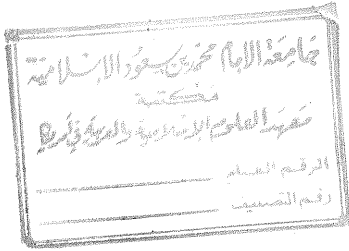 جامعة الإمام محمد بن سعود الإسلامية
مكتبة
معهد العلوم الإسلامية والعربية في أمريكا
الرقم العام
رقم التصنيف